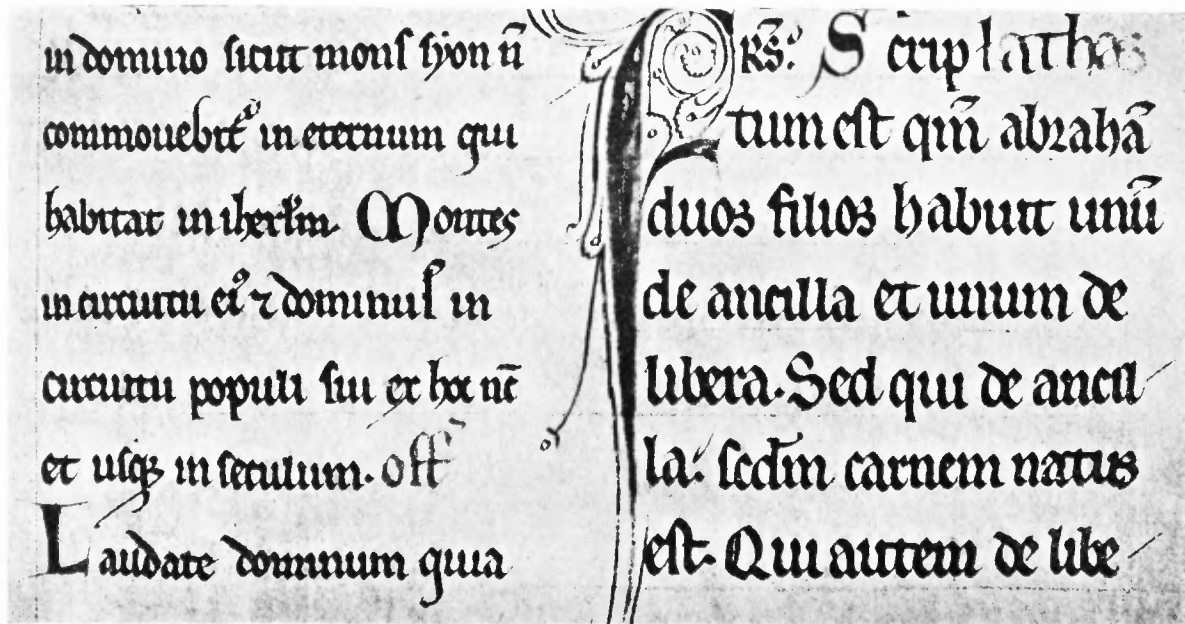 in domino sicut mons syon n̄
commouebit᷑ in eternum qui
habitat in iherłm. Montes
in circuitu eiꝰ ⁊ dominus in
circuitu populi sui ex hoc nc̄
et usqꝫ in seculum. Off̄
Laudate dominum quia
F
Rs̄. Scrip
tum est qm̄ abrahā
duos filios habuit unū
de ancilla et unum de
libera. Sed qui de ancil
la. scd̄m carnem natus
est. Qui autem de libe